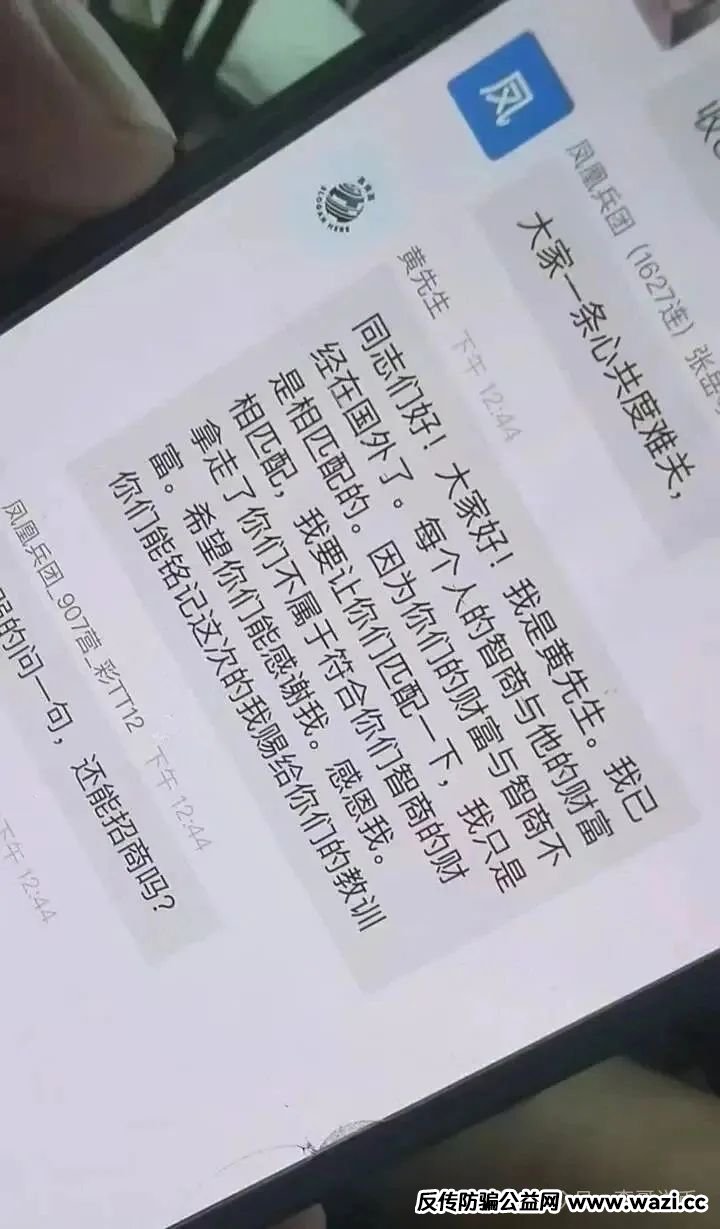 收
凤
凤凰兵团（1627连）张岳
大家一条心共度难关，
SLOGAN HERE
黄先生 下午 12:44
同志们好！大家好！我是黄先生。我已
经在国外了。每个人的智商与他的财富
是相匹配的。因为你们的财富与智商不
相匹配，我要让你们匹配一下，我只是
拿走了你们不属于符合你们智商的财
富。希望你们能感谢我。感恩我。
你们能铭记这次的我赐给你们的教训
凤凰兵团_907营_彩TT12 下午 12:44
的问一句，还能招商吗？
下午 12:44
反传防骗公益网 www.wazi.cc